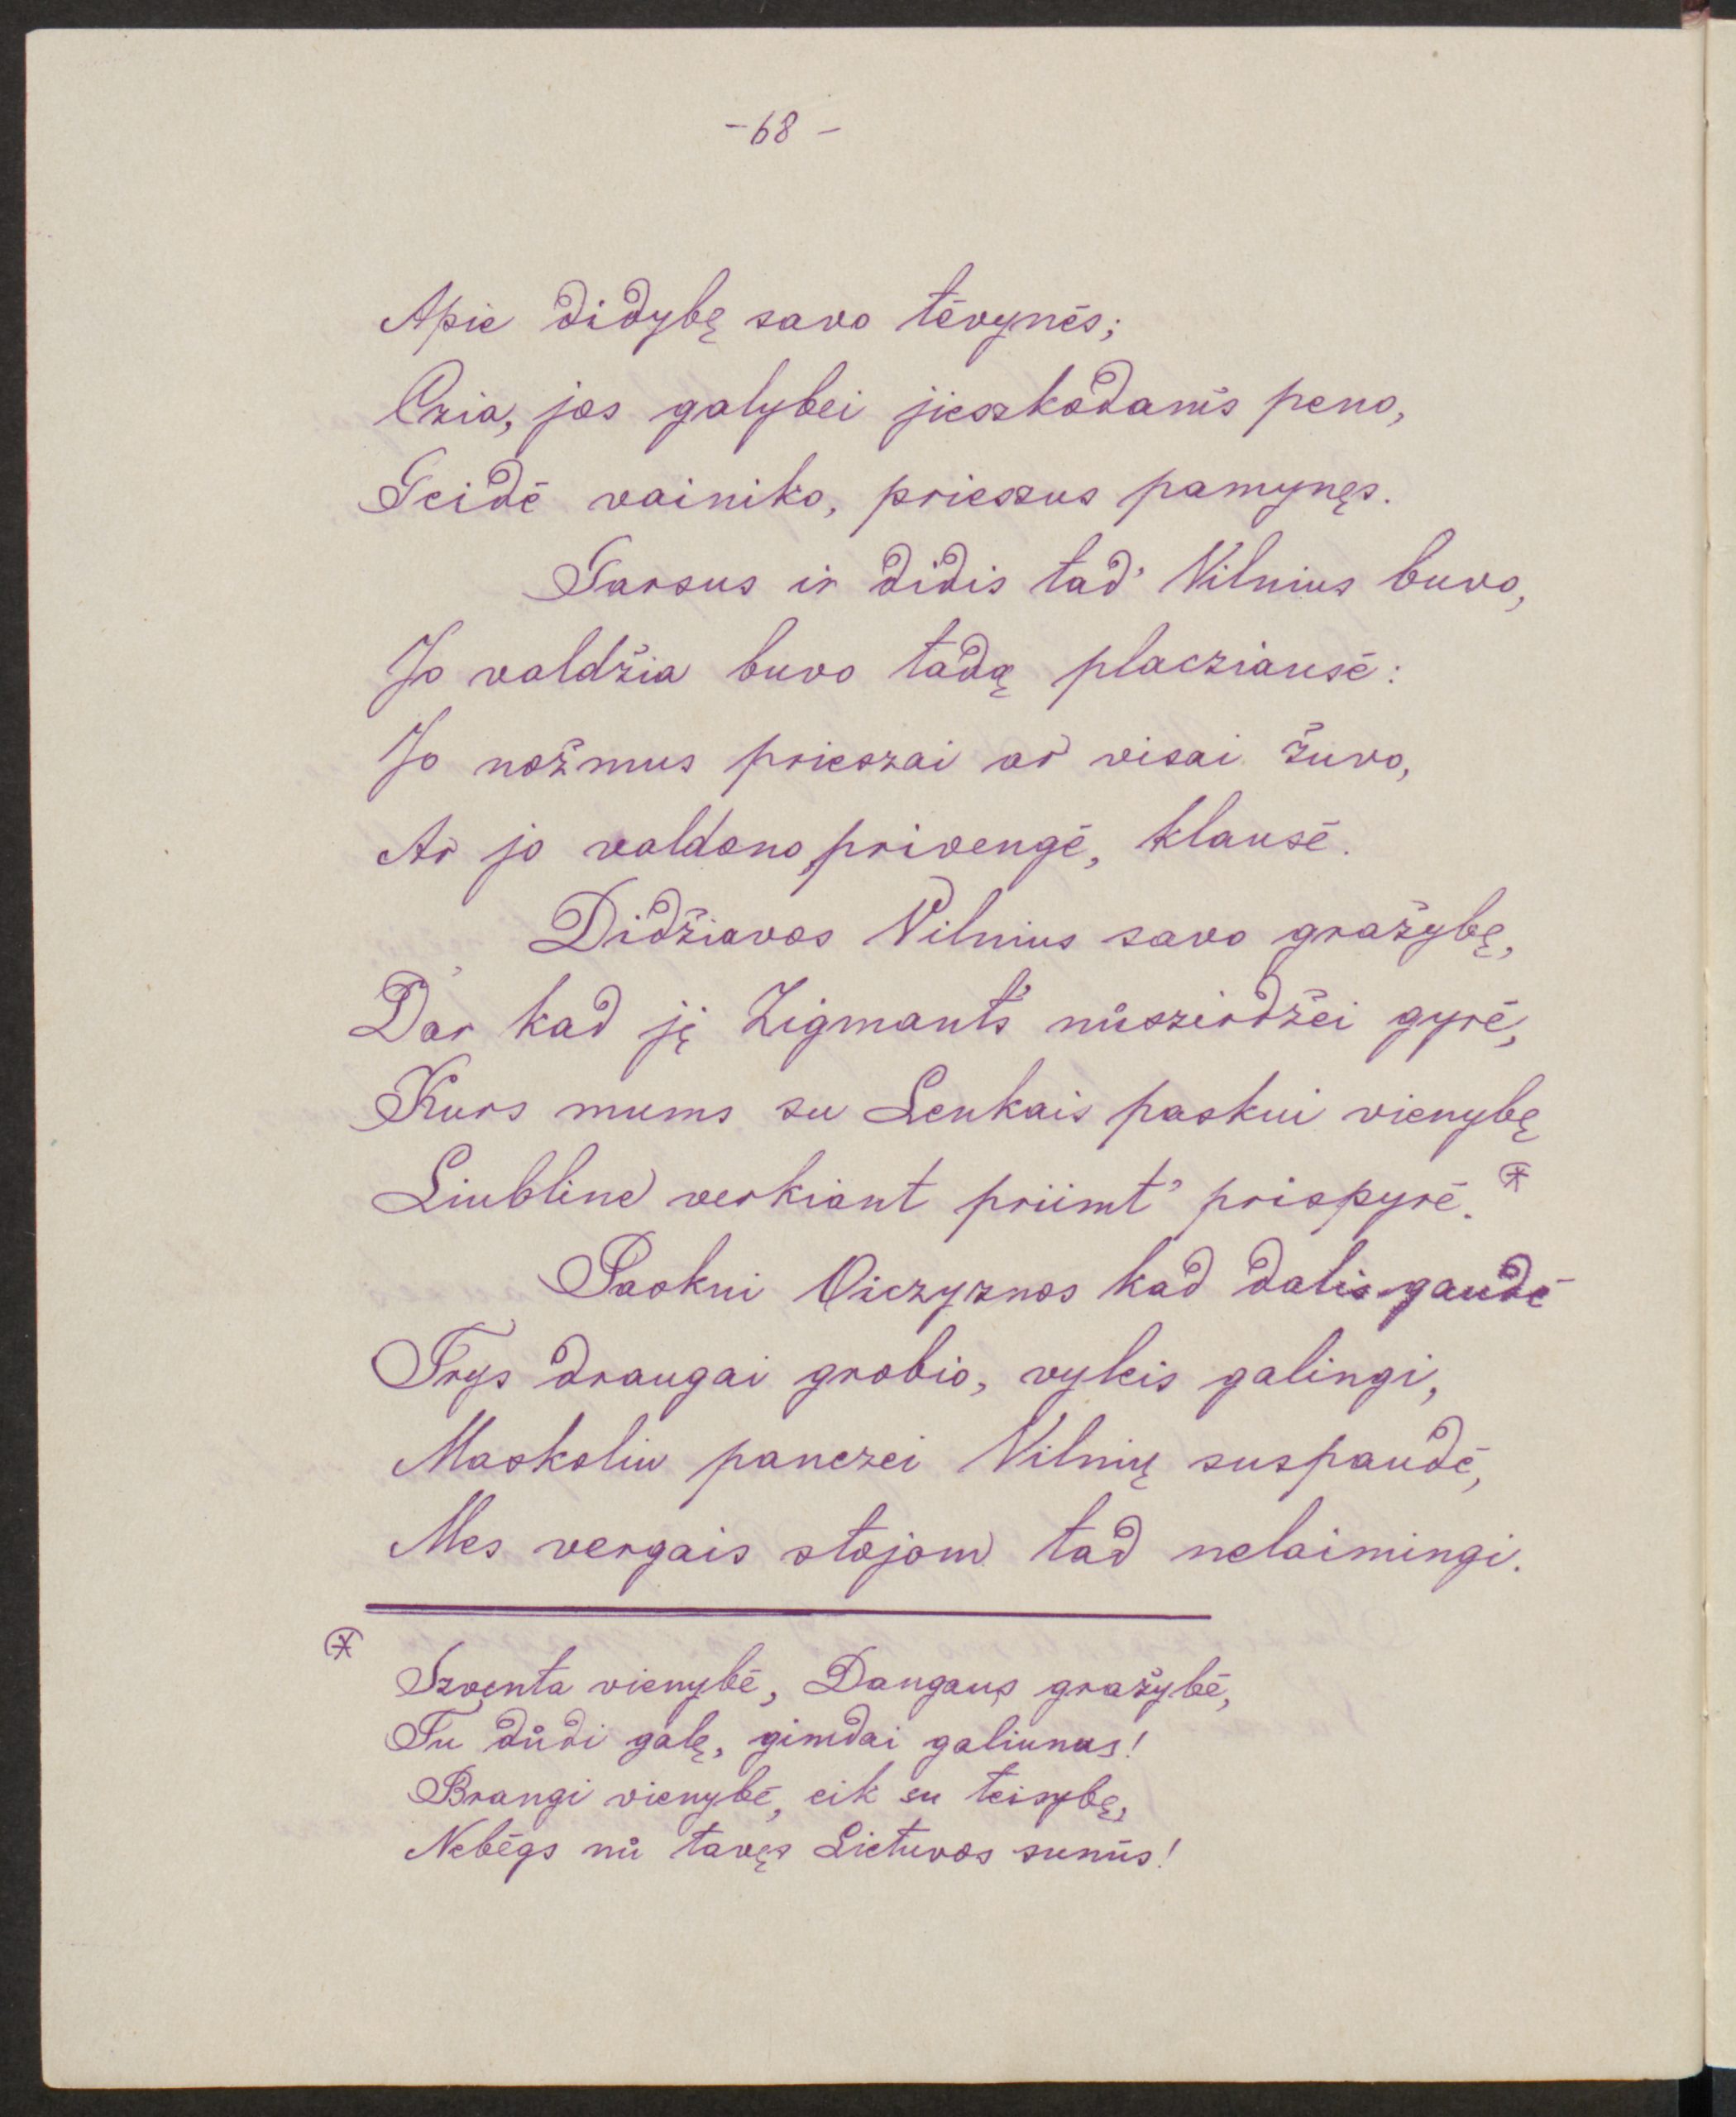 - 68 -
Apie didybę savo tėvynės;
Czia, jos galybei jieszkodams peno,
Geidė vainiko, prieszus pamynęs.
Garsus ir didis tad' Vilnius buvo,
Jo valdžia buvo tadą placziausė:
Jo nožmus prieszai ar visai žuvo,
Ar jo valdono, privengė, klausė.
Didžiavos Vilnius savo gražybę,
Dar kad ję Zigmants' nůszirdžei gyrė,
Kurs mums su Lenkais paskui vienybę
Liubline verkiant priimt' prispyrė. *
Paskui Oiczyznos kad dalis gaudė
Trys draugai grobio, vyleis galingi,
Maskoliu panczei Vilnių suspaudė,
Mes vergais stojom tad nelaimingi.
* Szventa vienybė, Dangaus gražybė,
Tu důdi galę, gimdai galiunus!
Brangi vienybė, eik su teisybę,
Nebėgs nů tavęs Lietuvos sunųs!